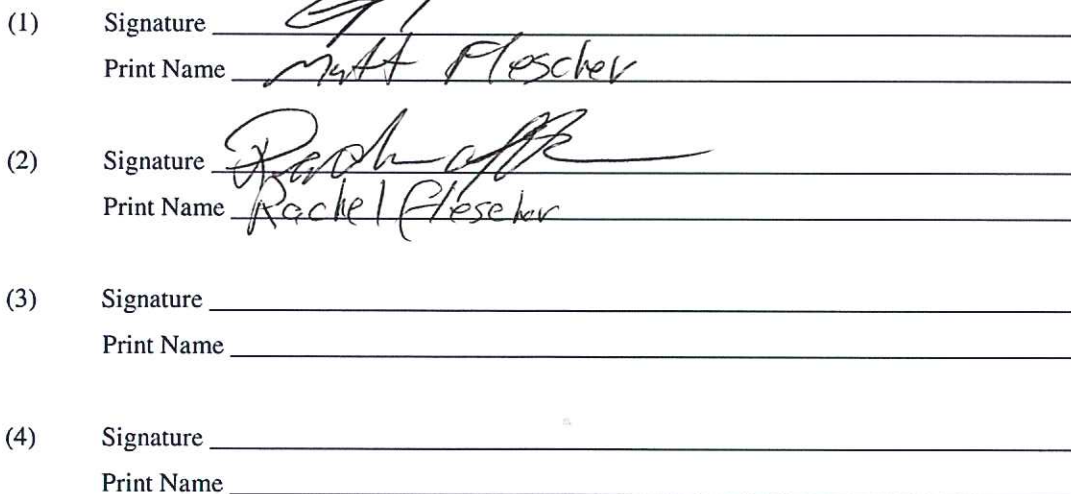 (1) Signature
Print Name Matt Flescher
(2) Signature
Print Name Rachel Flescher
(3) Signature
Print Name
(4) Signature
Print Name